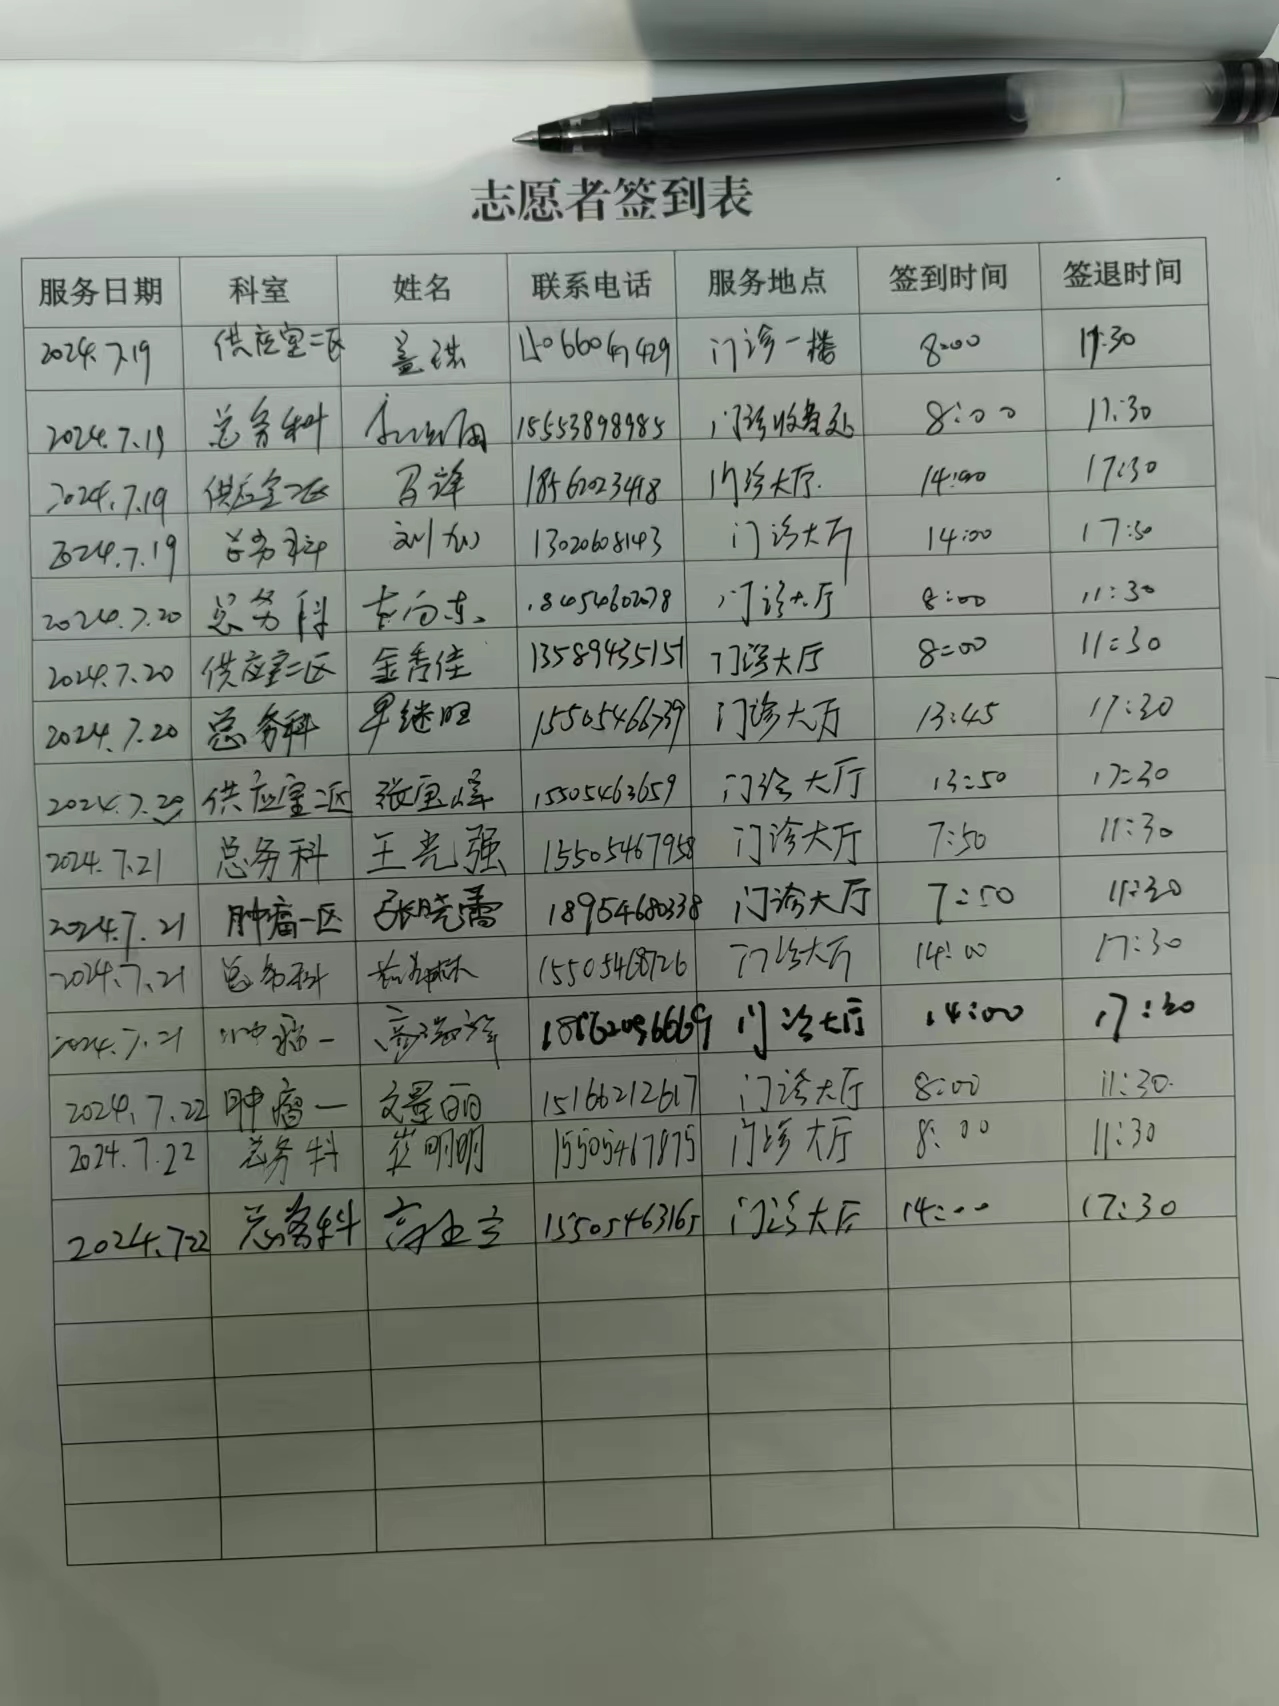 志愿者签到表
服务日期 科室 姓名 联系电话 服务地点 签到时间 签退时间
2024.7.19 供应室二区 盖琪 15066047429 门诊一楼 8:00 11:30
2024.7.19 总务科 15553898985 门诊收费处 8:00 11:30
2024.7.19 供应室二区 18562023498 门诊大厅 14:00 17:30
2024.7.19 总务科 13020608143 门诊大厅 14:00 17:30
2024.7.20 总务科 门诊大厅 8:00 11:30
2024.7.20 供应室二区 金秀佳 13589435151 门诊大厅 8:00 11:30
2024.7.20 总务科 15505466739 门诊大厅 13:45 17:30
2024.7.20 供应室二区 15505463659 门诊大厅 13:50 17:30
2024.7.21 总务科 王光强 15505467958 门诊大厅 7:50 11:30
2024.7.21 肿瘤一区 张晓蕾 18954680338 门诊大厅 7:50 11:30
2024.7.21 总务科 15505468726 门诊大厅 14:00 17:30
2024.7.21 肿瘤一 门诊大厅 14:00 17:30
2024.7.22 肿瘤一 文景丽 15166212617 门诊大厅 8:00 11:30
2024.7.22 总务科 崔明明 15505467875 门诊大厅 8:00 11:30
2024.7.22 总务科 15505463165 门诊大厅 14:00 17:30